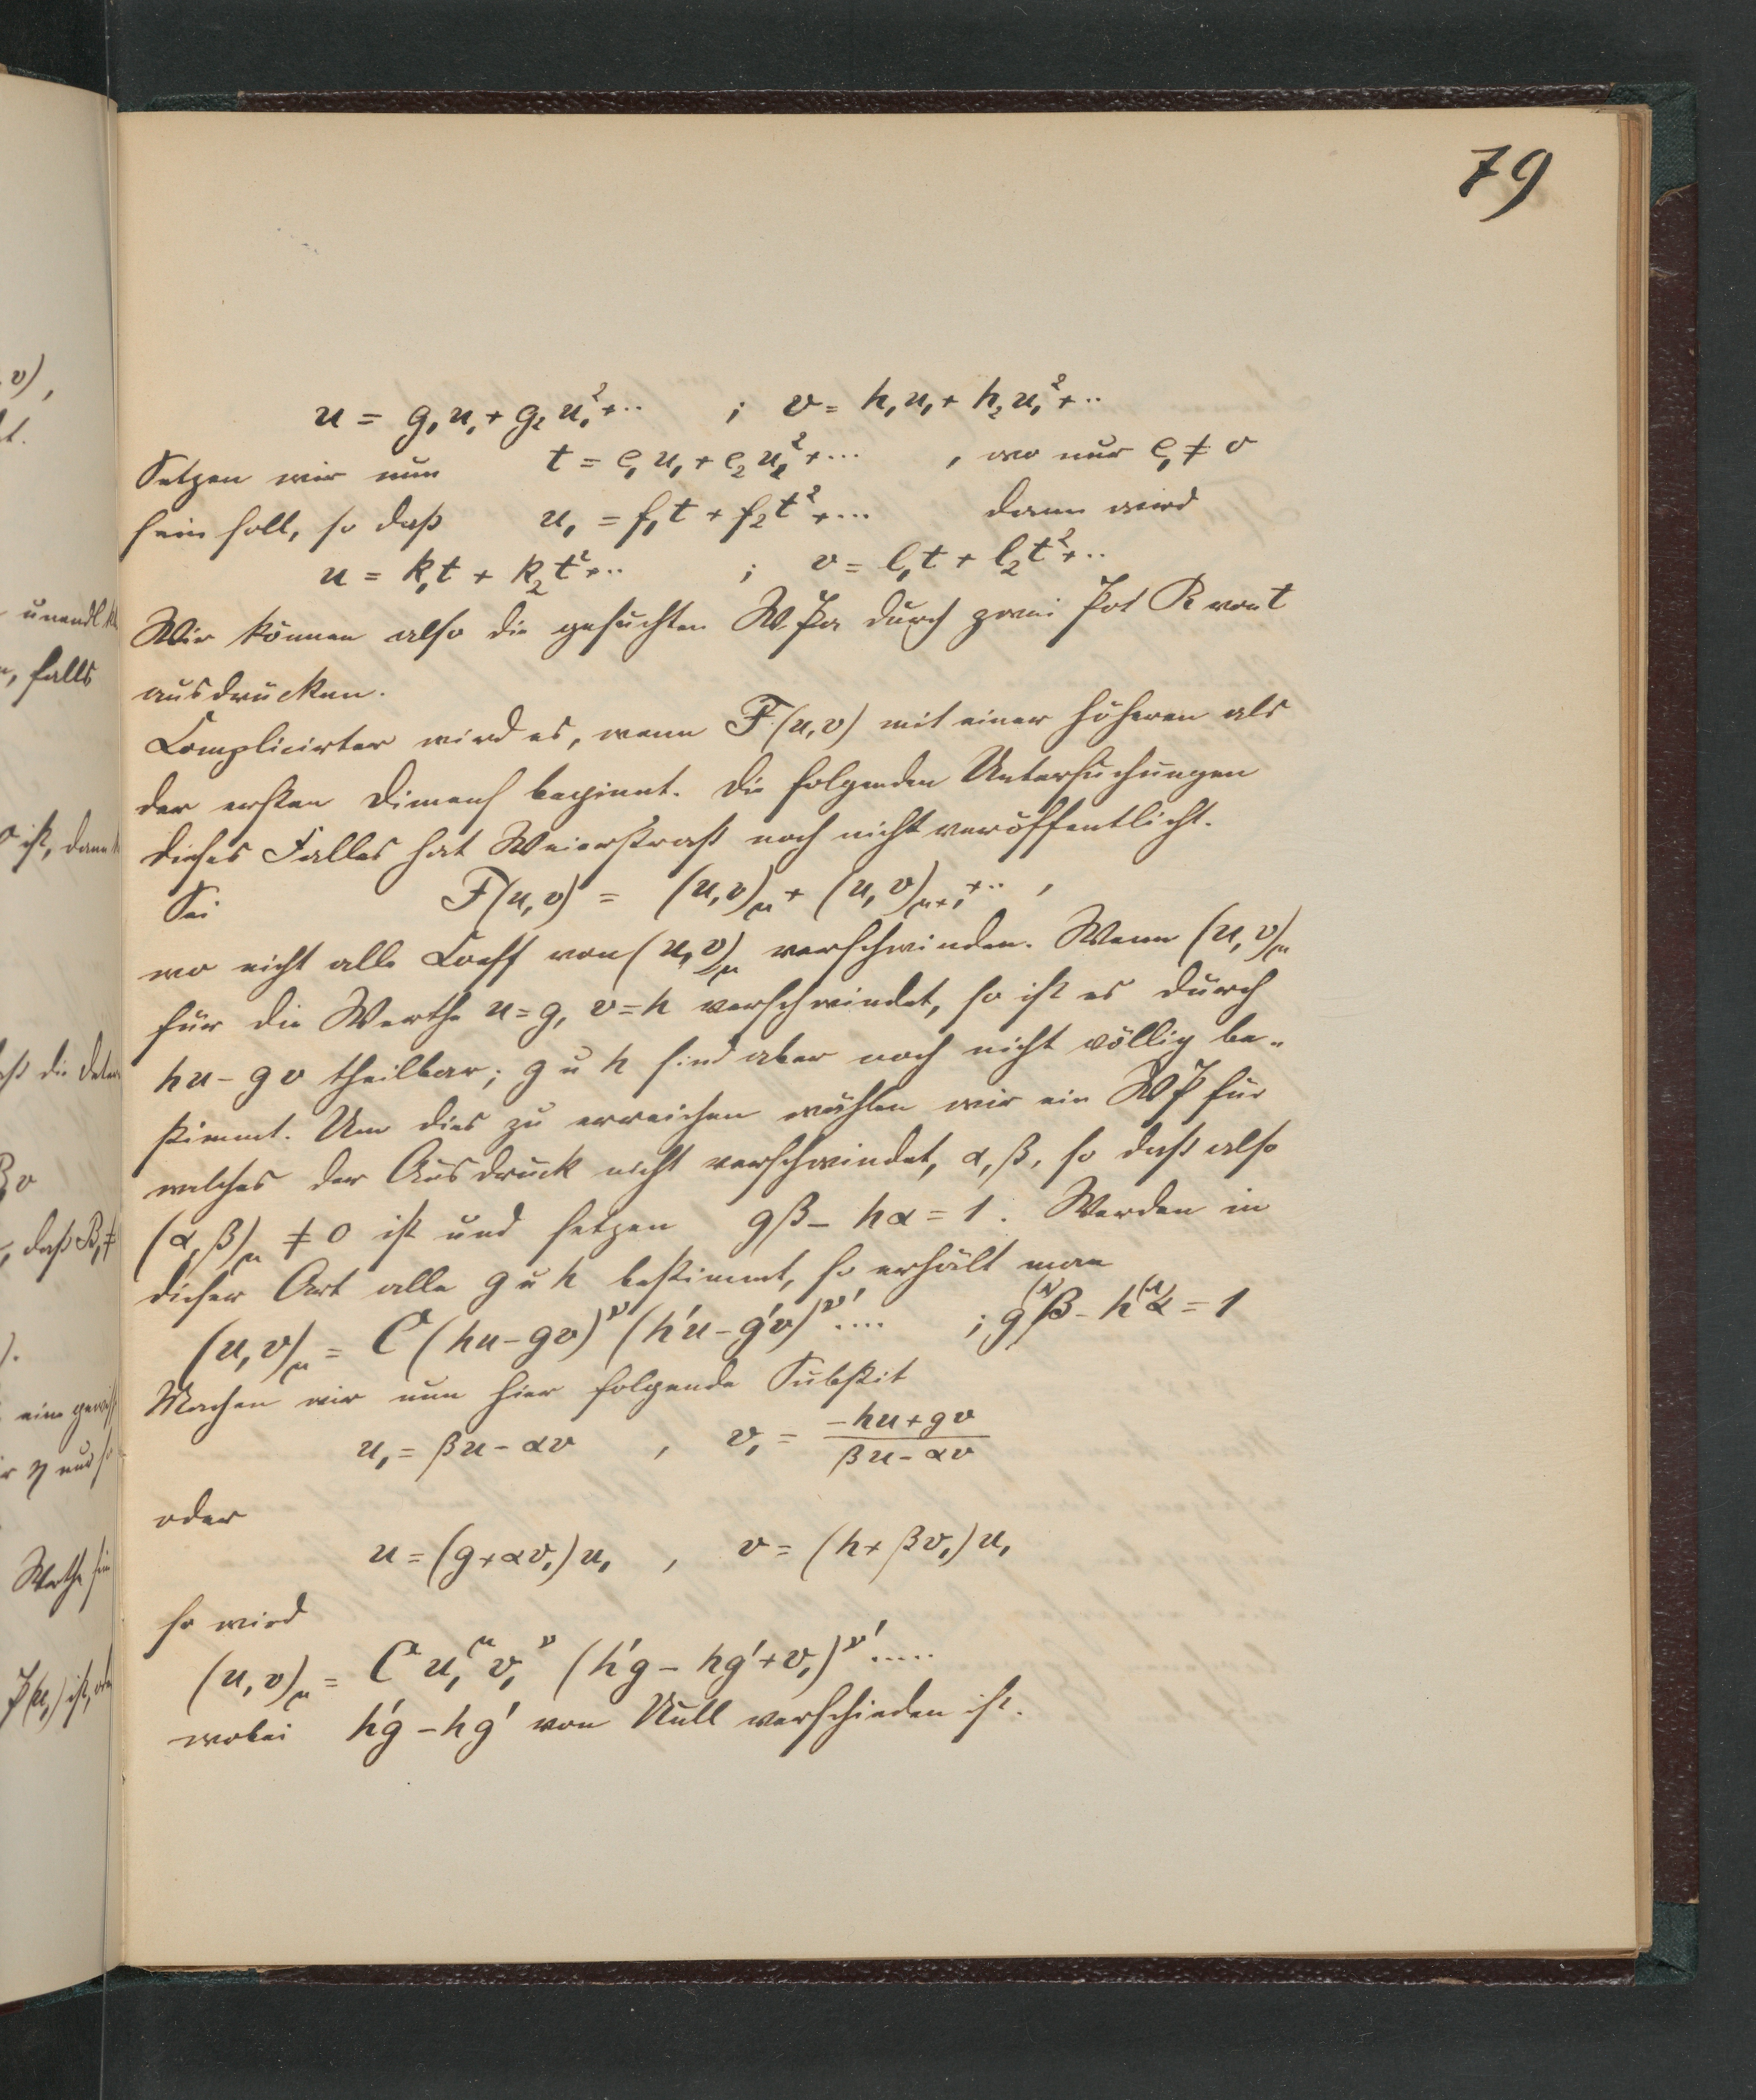 79
u = g₁u₁ + g₂u₁² + ·· ; v = h₁u₁ + h₂u₁² + ··
Setzen wir nun t = e₁u₁ + e₂u₁² + ··· , wo nur e₁ ≠ 0
sein soll, so daß u₁ = f₁t + f₂t² + ··· dann wird
u = k₁t + k₂t² + ·· ; v = l₁t + l₂t² + ··
Wir können also die gesuchten W.Pa durch zwei Pot R von t
ausdrücken.
Complicirter wird es, wenn F(u,v) mit einer höheren als
der ersten Dimens beginnt. Die folgenden Untersuchungen
dieses Falles hat Weierstrass noch nicht veröffentlicht.
Sei F(u,v) = (u,v)_μ + (u,v)_{μ+1} + ·· ,
wo nicht alle Coeff von (u,v)_μ verschwinden. Wenn (u,v)_μ
für die Werthe u=g, v=h verschwindet, so ist es durch
hu - gv theilbar; g u h sind aber noch nicht völlig be-
stimmt. Um dies zu erreichen wählen wir ein WP für
welches der Ausdruck nicht verschwindet, α, β, so daß also
(α, β)_μ ≠ 0 ist und setzen gβ - hα = 1. Werden in
dieser Art alle g u h bestimmt, so erhält man
(u,v)_μ = C (hu - gv)^ν (h'u - g'v)^ν' .... ; g^(ν)β - h^(ν)α = 1
Machen wir nun hier folgende Substit
u₁ = βu - αv , v₁ = (-hu + gv)/(βu - αv)
oder
u = (g + αv₁)u₁ , v = (h + βv₁)u₁
so wird
(u,v)_μ = C u₁^μ v₁^ν (h'g - hg' + v₁)^ν' .....
wobei h'g - hg' von Null verschieden ist.